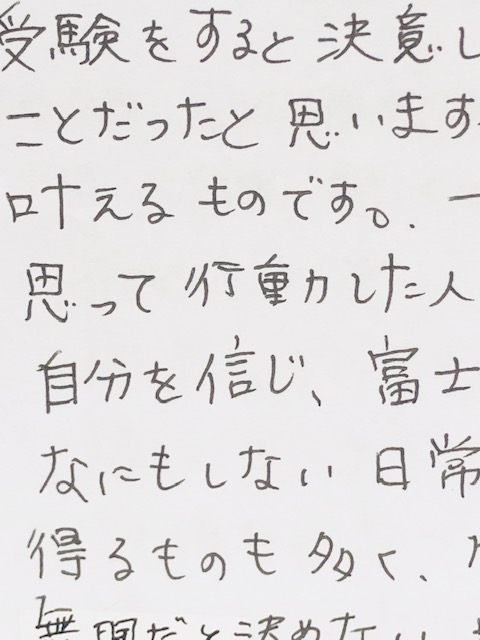 受験をすると決意し
ことだったと思います
叶えるものです。
思って行動した人
自分を信じ、富士
なにもしない日常
得るものも多く、
だと決めない